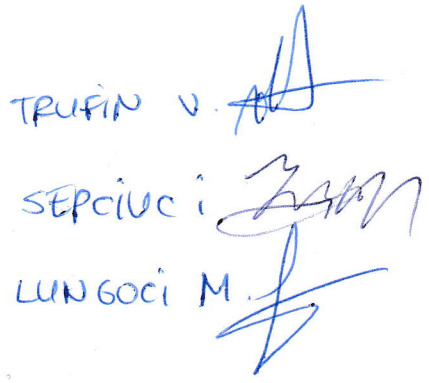 TRUFiN V.
SEPCiUC i
LUNGOCi M.